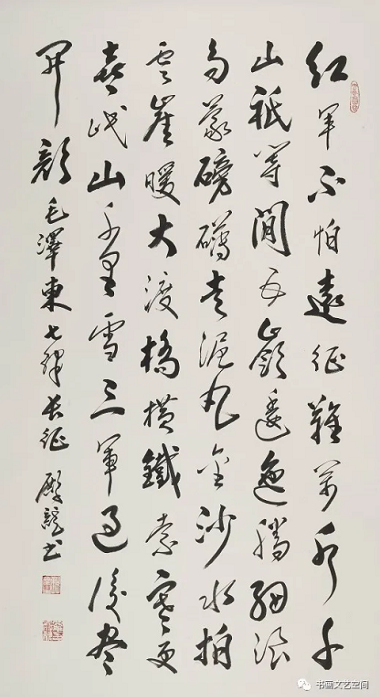 紅軍不怕遠征難萬水千
山祇等閒五嶺逶迤騰細浪
烏蒙磅礴走泥丸金沙水拍
雲崖暖大渡橋橫鐵索寒更
喜岷山千里雪三軍過後盡
開顏 毛澤東七律長征 殿龍书
书画文艺空间